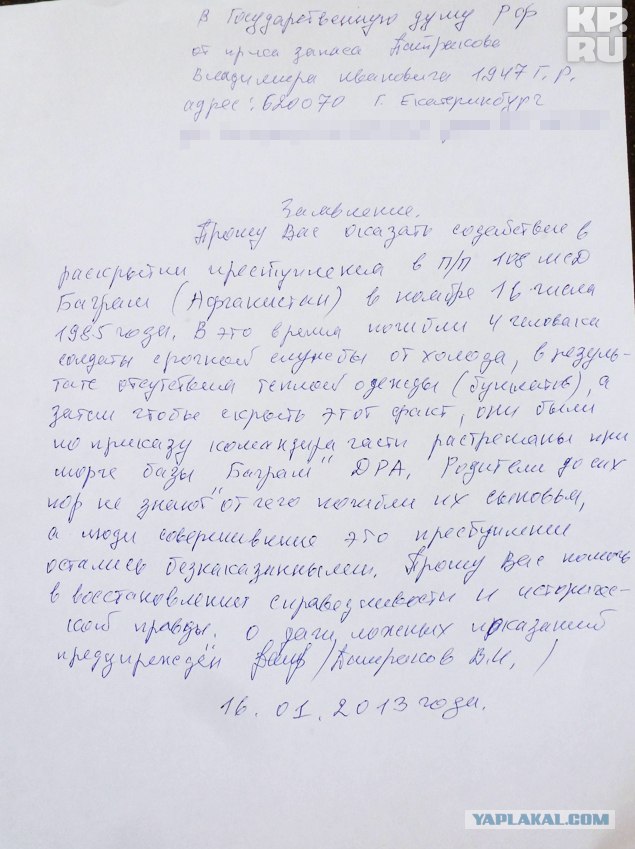 KP.
RU
В Государственную думу РФ
от запаса
Владимира Ивановича 1947 Г.Р.
адрес: 620070 г. Екатеринбург
Заявление.
Прошу Вас оказать содействие в
раскрытии преступления в П/П 108 МСД
Баграм (Афганистан) в ноябре 16 числа
1985 года. В это время погибли 4 человека
солдаты срочной службы от холода, в резуль-
тате отсутствия теплой одежды (бушлатов), а
затем чтобы скрыть этот факт, они были
по приказу командира части при
морге базы "Баграм" ДРА. Родители до сих
пор не знают от чего погибли их сыновья,
а люди совершившие это преступление
остались безнаказанными. Прошу Вас помочь
в восстановлении справедливости и историче-
ской правды. О даче ложных показаний
предупреждён / В.И. /
16.01.2013 года.
YAPLAKAL.COM